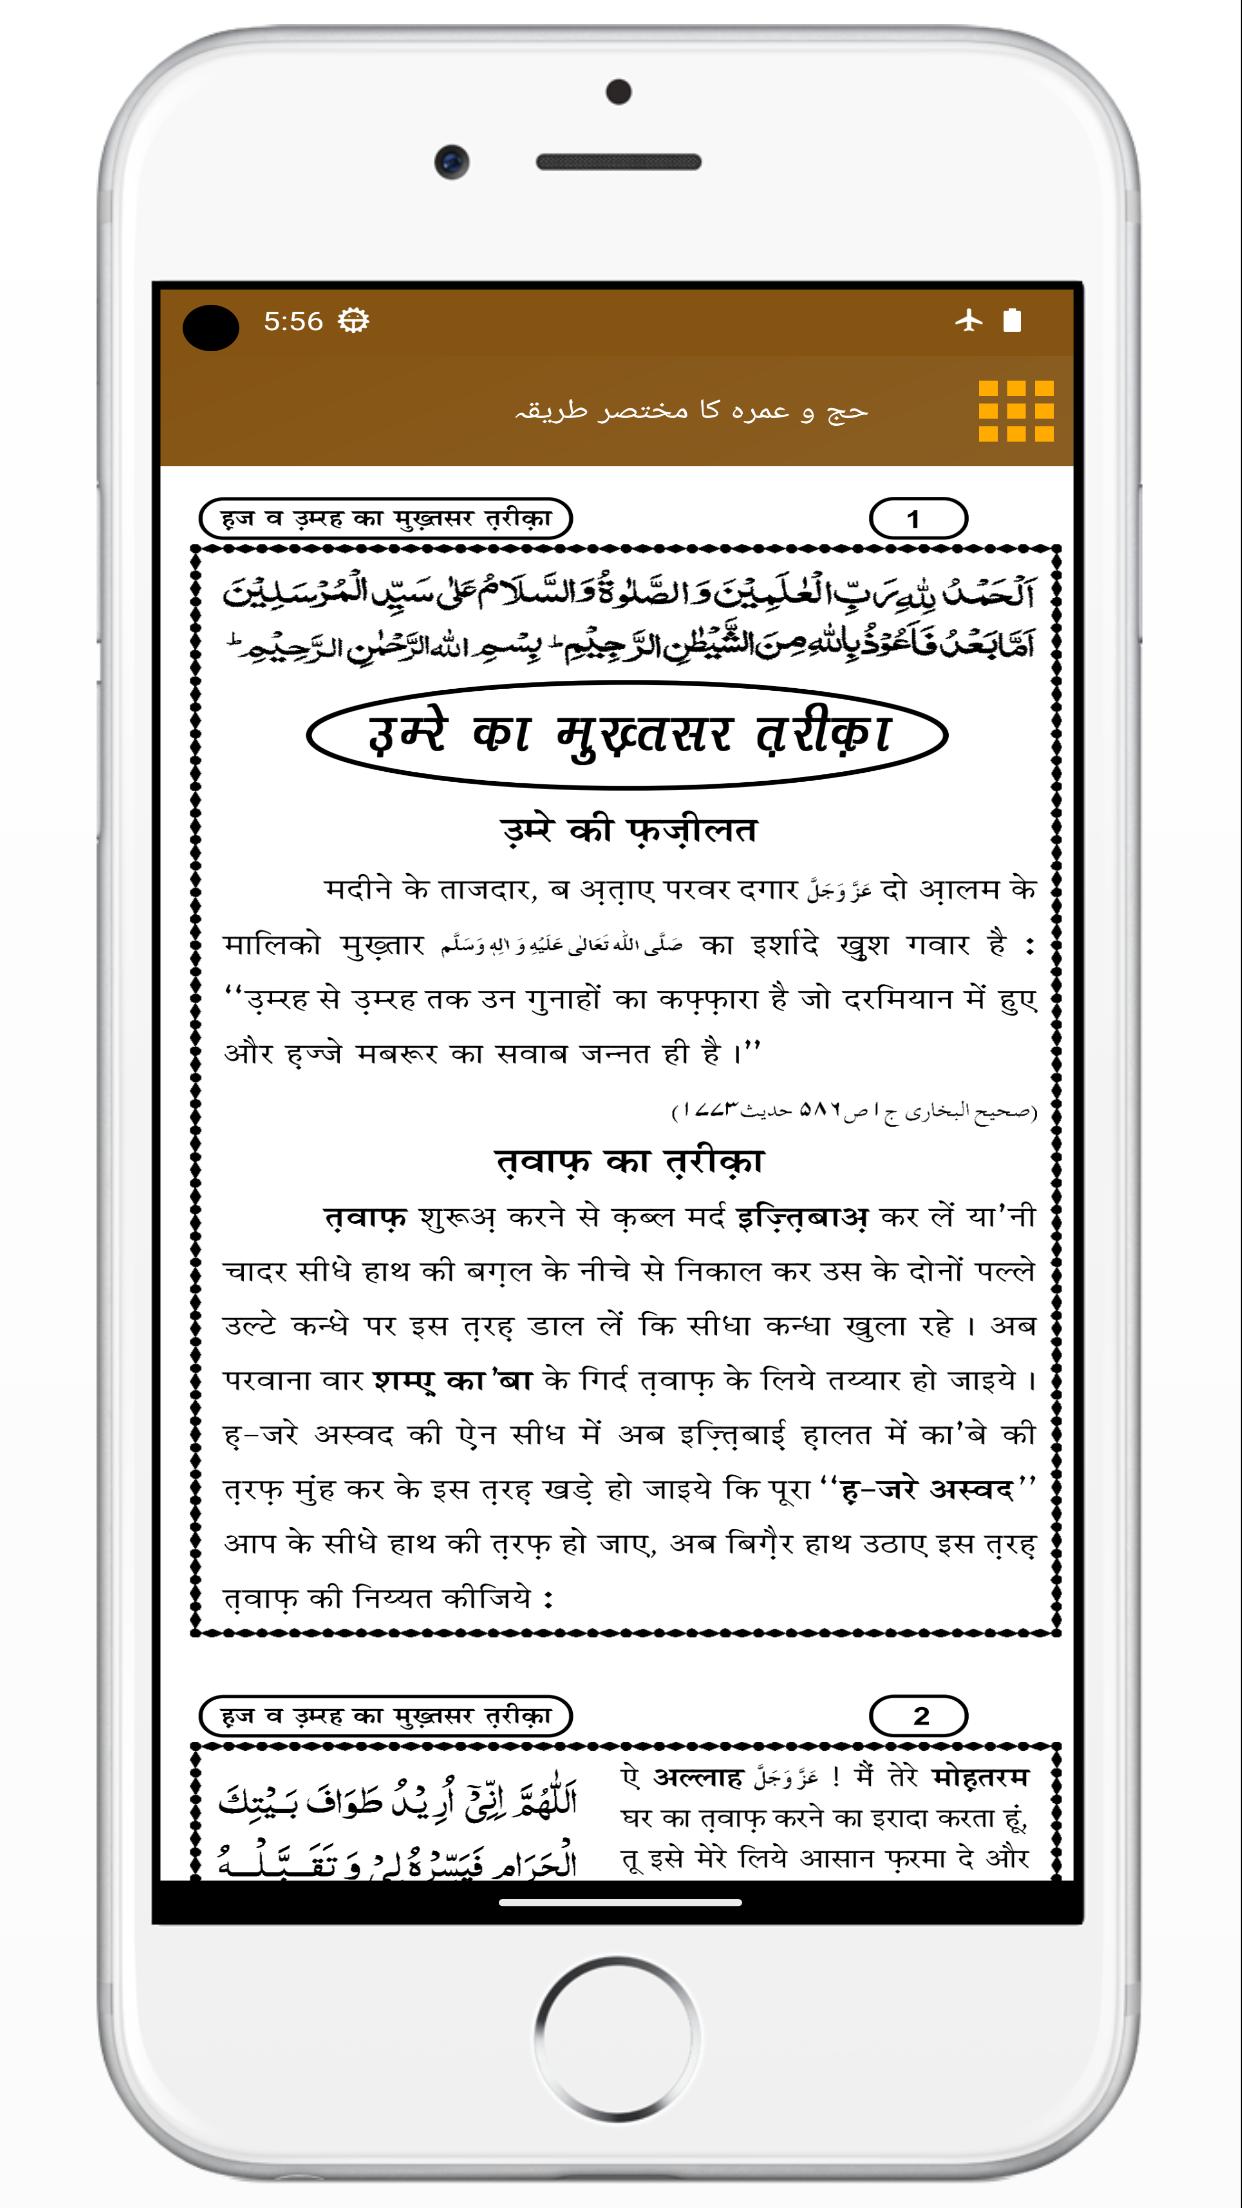 5:56
حج و عمرہ کا مختصر طریقہ
ह़ज व उ़म्रह का मुख़्तसर त़रीक़ा
1
اَلْحَمْدُ لِلّٰهِ رَبِّ الْعٰلَمِيْنَ وَ الصَّلٰوةُ وَالسَّلَامُ عَلٰى سَيِّدِ الْمُرْسَلِيْنَ
اَمَّا بَعْدُ فَاَعُوْذُ بِاللّٰهِ مِنَ الشَّيْطٰنِ الرَّجِيْمِ ؕ بِسْمِ اللهِ الرَّحْمٰنِ الرَّحِيْمِ ؕ
उ़म्रे का मुख़्तसर त़रीक़ा
उ़म्रे की फ़ज़ीलत
मदीने के ताजदार, ब अ़त़ाए परवर दगार عَزَّ وَجَلَّ दो आ़लम के
मालिको मुख़्तार صَلَّى اللّٰه تَعَالٰى عَلَيْهِ وَ اٰلِهٖ وَسَلَّم का इर्शादे ख़ुश गवार है :
‘‘उ़म्रह से उ़म्रह तक उन गुनाहों का कफ़्फ़ारा है जो दरमियान में हुए
और ह़ज्जे मबरूर का सवाब जन्नत ही है ।’’
(صحیح البخاری ج۱ ص۵۸۶ حدیث۱۷۷۳)
त़वाफ़ का त़रीक़ा
त़वाफ़ शुरूअ़ करने से क़ब्ल मर्द इज़्त़िबाअ़ कर लें या’नी
चादर सीधे हाथ की बग़ल के नीचे से निकाल कर उस के दोनों पल्ले
उल्टे कन्धे पर इस त़रह़ डाल लें कि सीधा कन्धा खुला रहे । अब
परवाना वार शम्ए़ का’बा के गिर्द त़वाफ़ के लिये तय्यार हो जाइये ।
ह़-जरे अस्वद की ऐ़न सीध में अब इज़्त़िबाई़ ह़ालत में का’बे की
त़रफ़ मुंह कर के इस त़रह़ खड़े हो जाइये कि पूरा ‘‘ह़-जरे अस्वद’’
आप के सीधे हाथ की त़रफ़ हो जाए, अब बिग़ैर हाथ उठाए इस त़रह़
त़वाफ़ की निय्यत कीजिये :
ह़ज व उ़म्रह का मुख़्तसर त़रीक़ा
2
اَللّٰهُمَّ اِنِّيْۤ اُرِيْدُ طَوَافَ بَيْتِكَ
الْحَرَامِ فَيَسِّرْهُ لِيْ وَ تَقَبَّلْهُ
ऐ अल्लाह عَزَّ وَجَلَّ ! मैं तेरे मोह़तरम
घर का त़वाफ़ करने का इरादा करता हूं,
तू इसे मेरे लिये आसान फ़रमा दे और